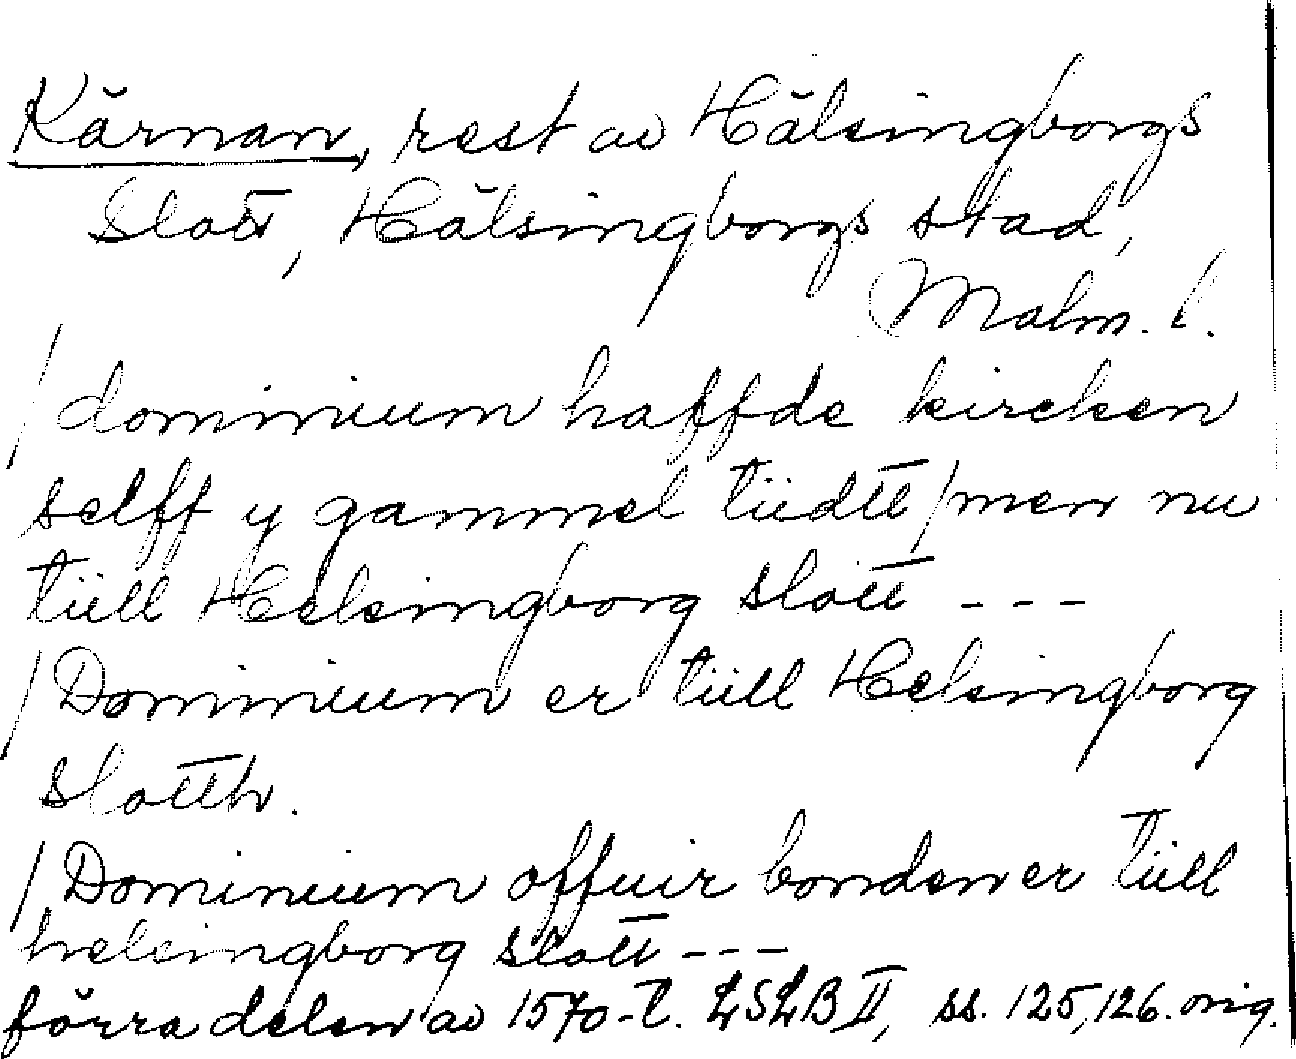 Kärnan, rest av Hälsingborgs
slott, Hälsingborgs stad,
Malm. l.
/dominium haffde kircken
selff y gammel tiidtt/men nu
tiill Helsingborg slott ---
/Dominium er tiill Helsingborg
slotth.
/Dominium offuir bonden er tiill
helsingborg slott ---
förra delen av 1570-t. LSLB II, ss. 125, 126. orig.